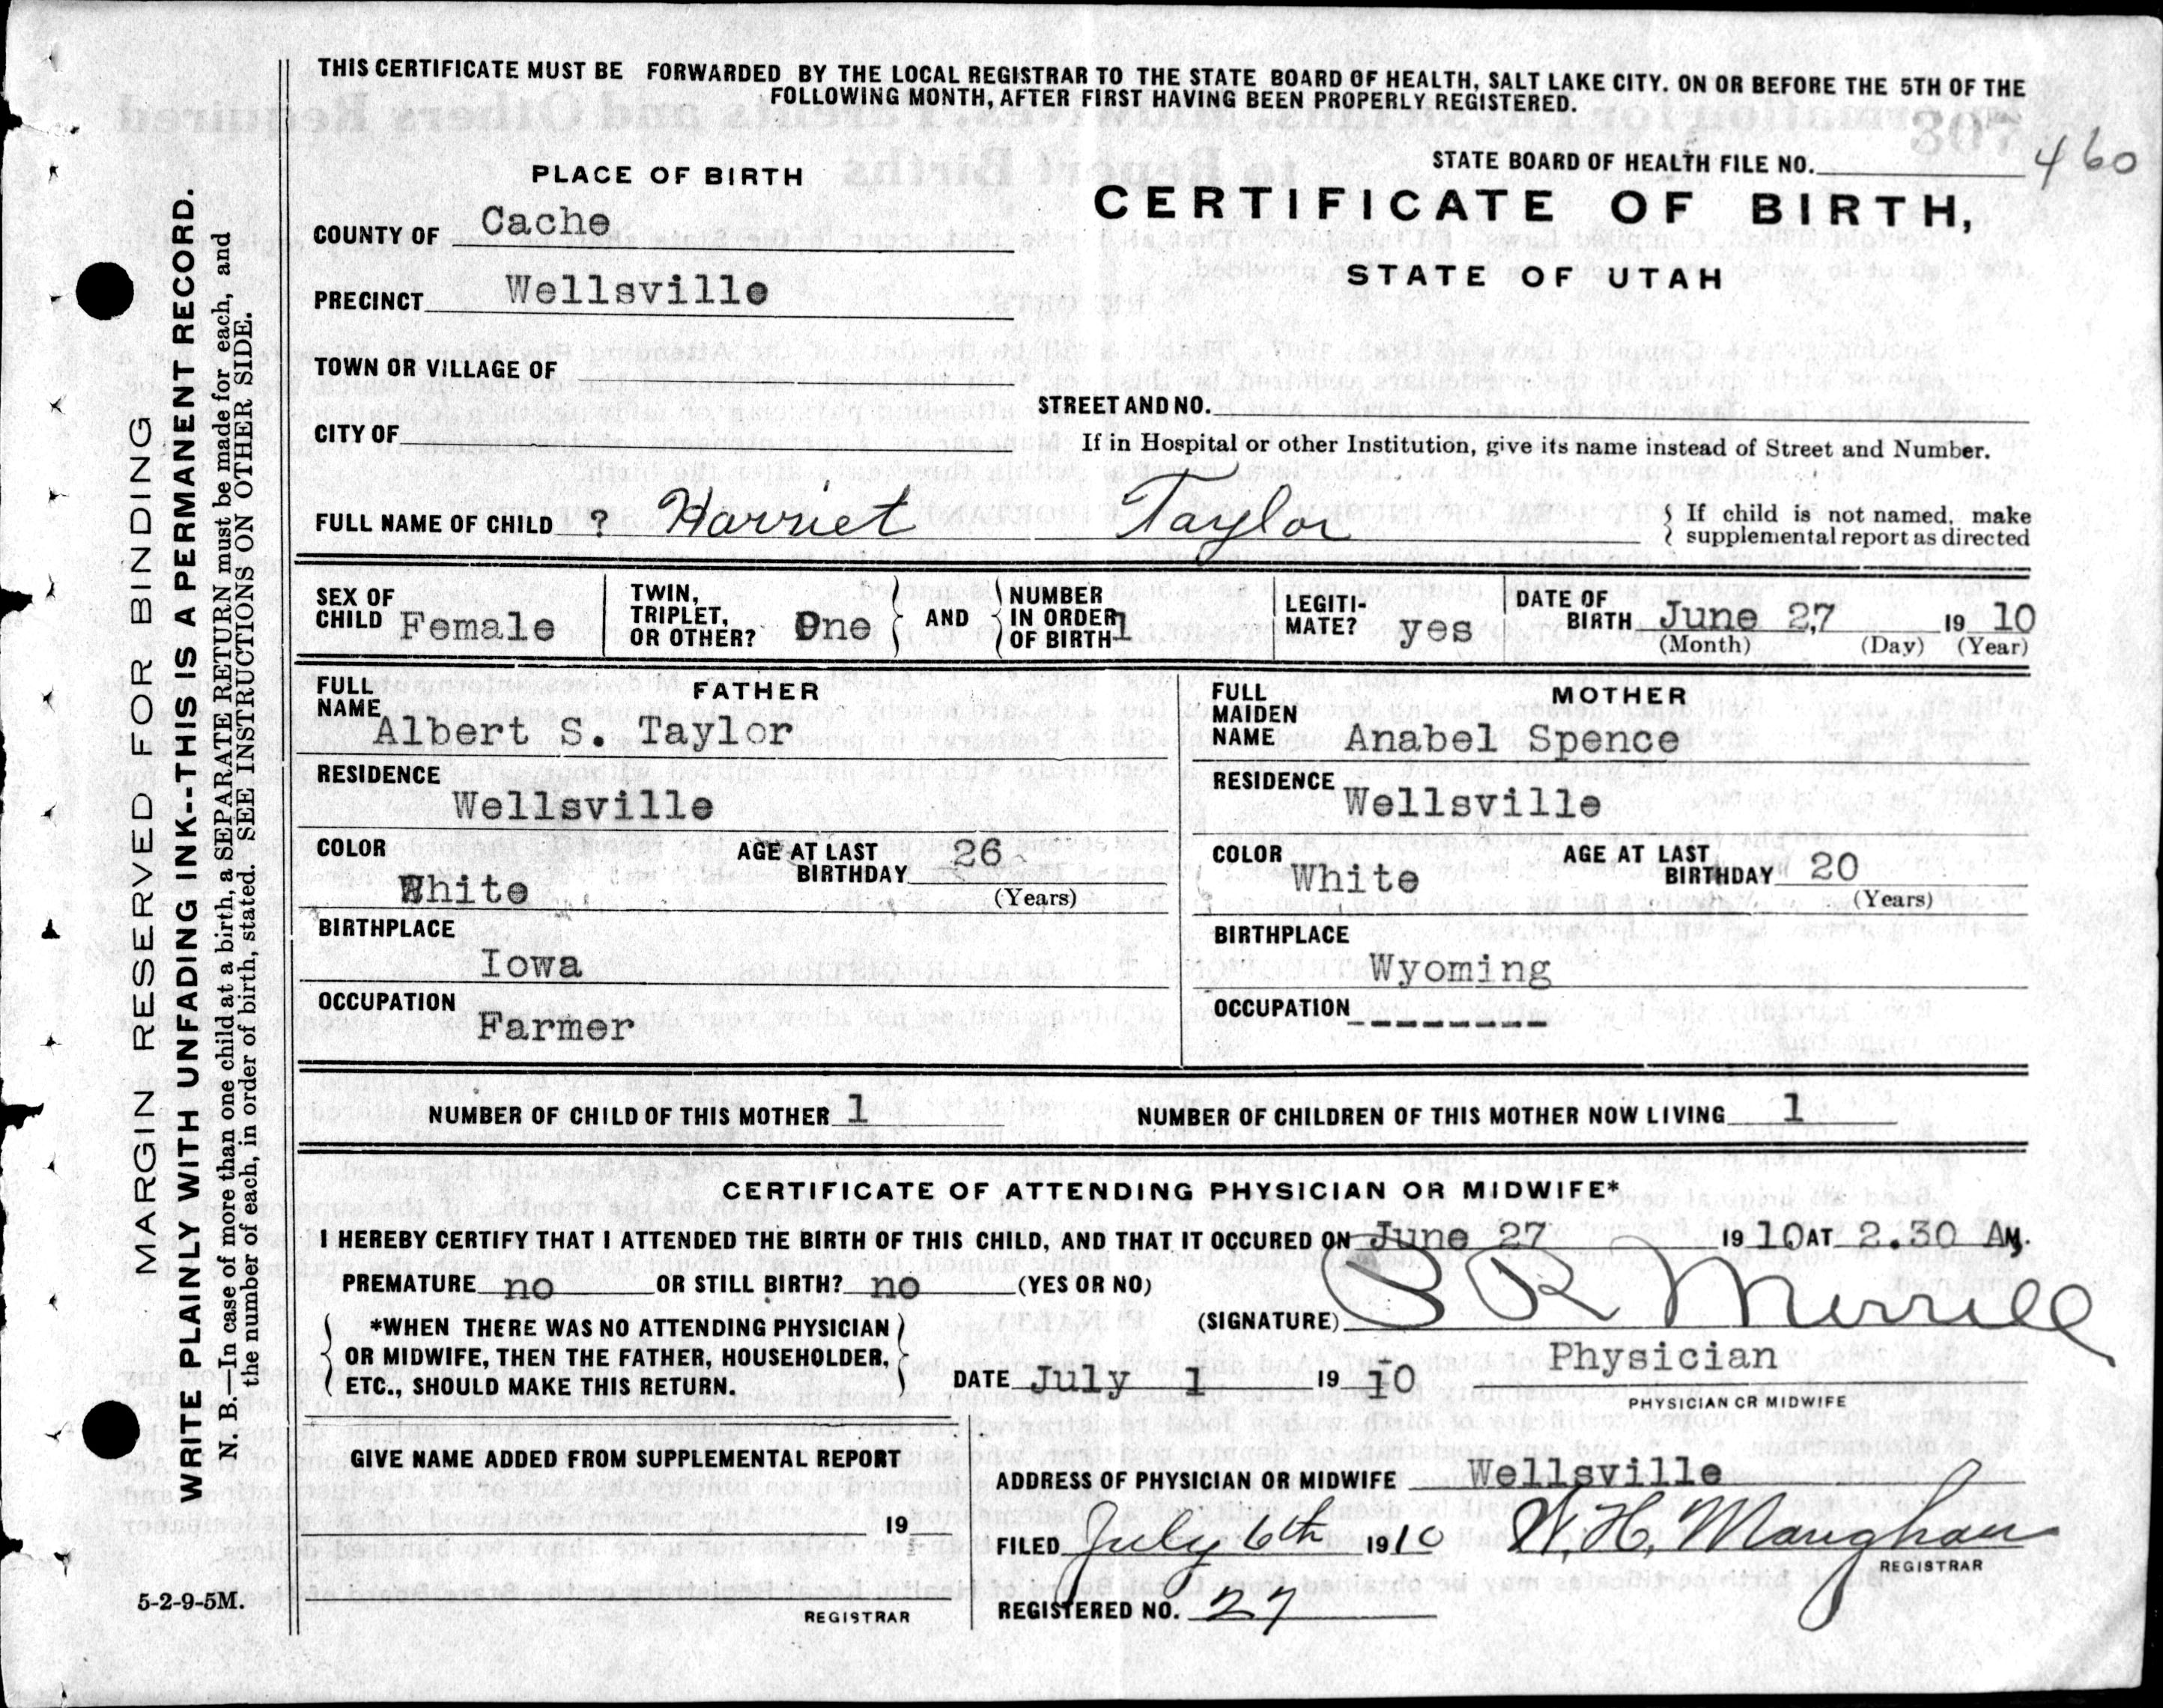 THIS CERTIFICATE MUST BE FORWARDED BY THE LOCAL REGISTRAR TO THE STATE BOARD OF HEALTH, SALT LAKE CITY. ON OR BEFORE THE 5TH OF THE
FOLLOWING MONTH, AFTER FIRST HAVING BEEN PROPERLY REGISTERED.
STATE BOARD OF HEALTH FILE NO. 460
PLACE OF BIRTH
CERTIFICATE OF BIRTH,
STATE OF UTAH
COUNTY OF Cache
PRECINCT Wellsville
TOWN OR VILLAGE OF
STREET AND NO.
CITY OF
If in Hospital or other Institution, give its name instead of Street and Number.
FULL NAME OF CHILD ? Harriet Taylor
If child is not named, make
supplemental report as directed
SEX OF CHILD Female
TWIN, TRIPLET, OR OTHER? One
AND
NUMBER IN ORDER OF BIRTH 1
LEGITI-MATE? yes
DATE OF BIRTH June 27, 1910
(Month) (Day) (Year)
FATHER
FULL NAME Albert S. Taylor
RESIDENCE Wellsville
COLOR White
AGE AT LAST BIRTHDAY 26
(Years)
BIRTHPLACE Iowa
OCCUPATION Farmer
MOTHER
FULL MAIDEN NAME Anabel Spence
RESIDENCE Wellsville
COLOR White
AGE AT LAST BIRTHDAY 20
(Years)
BIRTHPLACE Wyoming
OCCUPATION --------
NUMBER OF CHILD OF THIS MOTHER 1
NUMBER OF CHILDREN OF THIS MOTHER NOW LIVING 1
CERTIFICATE OF ATTENDING PHYSICIAN OR MIDWIFE*
I HEREBY CERTIFY THAT I ATTENDED THE BIRTH OF THIS CHILD, AND THAT IT OCCURED ON June 27 1910 AT 2.30 AM.
PREMATURE no OR STILL BIRTH? no (YES OR NO)
*WHEN THERE WAS NO ATTENDING PHYSICIAN
OR MIDWIFE, THEN THE FATHER, HOUSEHOLDER,
ETC., SHOULD MAKE THIS RETURN.
(SIGNATURE) R Merrill
Physician
PHYSICIAN OR MIDWIFE
DATE July 1 1910
GIVE NAME ADDED FROM SUPPLEMENTAL REPORT
19
REGISTRAR
ADDRESS OF PHYSICIAN OR MIDWIFE Wellsville
FILED July 6th 1910 W. H. Maughan
REGISTRAR
REGISTERED NO. 27
MARGIN RESERVED FOR BINDING
WRITE PLAINLY WITH UNFADING INK--THIS IS A PERMANENT RECORD.
N. B.—In case of more than one child at a birth, a SEPARATE RETURN must be made for each, and
the number of each, in order of birth, stated. SEE INSTRUCTIONS ON OTHER SIDE.
5-2-9-5M.